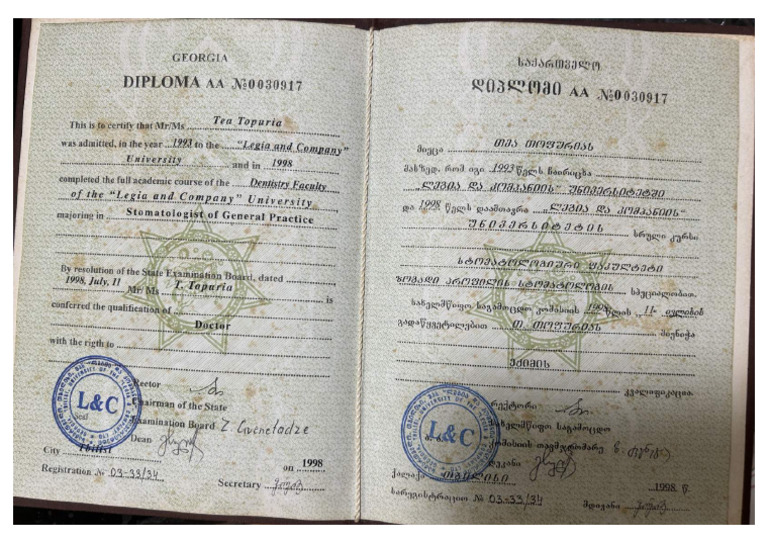 GEORGIA
DIPLOMA AA №0030917
This is to certify that Mr/Ms Tea Topuria
was admitted, in the year 1993 to the "Legia and Company"
University and in 1998
completed the full academic course of the Dentistry Faculty
of the "Legia and Company" University
majoring in Stomatologist of General Practice
By resolution of the State Examination Board, dated
1998, July, 11 Mr. Ms T. Topuria is
conferred the qualification of
Doctor
with the rigth to
Rector
L&C
Chairman of the State
Examination Board Z. Gvenetadze
Dean
City Tbilisi
on 1998
Registration № 03-33/34
Secretary
საქართველო
დიპლომი AA №0030917
მიეცა თეა თოფურიას
მასზედ, რომ იგი 1993 წელს ჩაირიცხა
„ლეგია და კომპანიის“ უნივერსიტეტში
და 1998 წელს დაამთავრა „ლეგია და კომპანიის“
უნივერსიტეტის სრული კურსი
სტომატოლოგიური ფაკულტეტი
ზოგადი პროფილის სტომატოლოგის სპეციალობით.
სახელმწიფო საგამოცდო კომისიის 1998 წლის 11 ივლისის
გადაწყვეტილებით თ. თოფურიას მიენიჭა
ექიმის
კვალიფიკაცია.
რექტორი
L&C
სახელმწიფო საგამოცდო
კომისიის თავმჯდომარე
დეკანი
ქალაქი თბილისი
1998 წ.
სარეგისტრაციო № 03-33/34
მდივანი